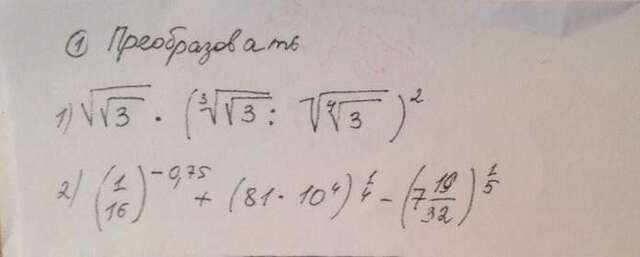 ① Преобразовать
1) √√3 · (³√√3 : √⁴√3)²
2) (1/16)^-0,75 + (81 · 10⁴)^1/4 - (7 19/32)^1/5